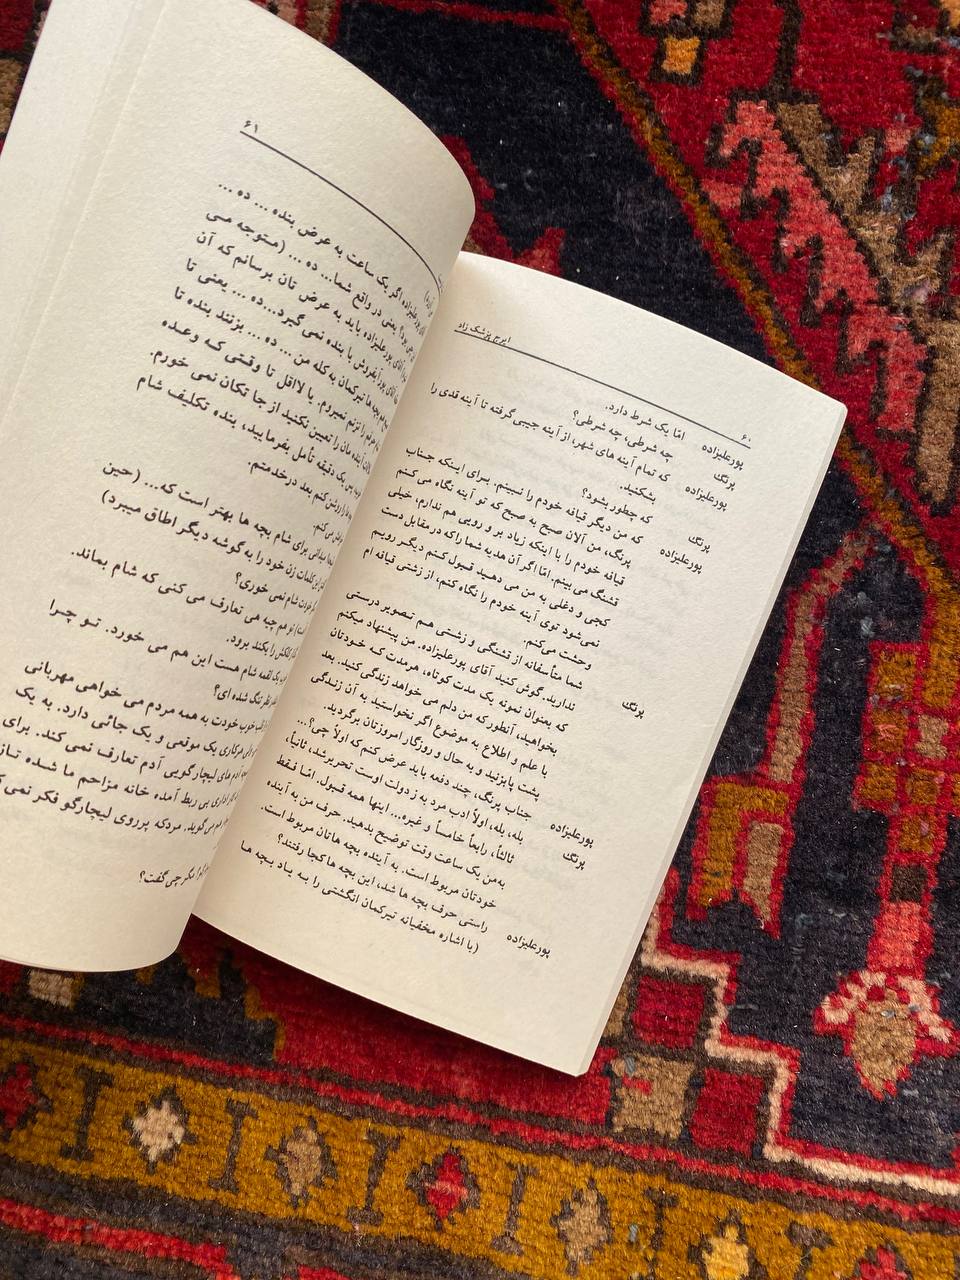 ۶۰
ایرج پزشک زاد
پورعلیزاده امّا یک شرط دارد.
پرنگ چه شرطی، چه شرطی؟
پورعلیزاده که تمام آینه های شهر، از آینه جیبی گرفته تا آینه قدی را
بشکنید.
پرنگ که چطور بشود؟
پورعلیزاده که من دیگر قیافه خودم را نبینم. برای اینکه جناب
پرنگ، من الان صبح به صبح که تو آینه نگاه می کنم
قیافه خودم را با اینکه زیاد بر و رویی هم ندارم، خیلی
قشنگ می بینم. امّا اگر آن هدیه شما را که در مقابل دست
کجی و دغلی به من می دهید قبول کنم دیگر رویم
نمی شود توی آینه خودم را نگاه کنم، از زشتی قیافه ام
وحشت می کنم.
پرنگ شما متأسفانه از قشنگی و زشتی هم تصویر درستی
ندارید. گوش کنید آقای پورعلیزاده. من پیشنهاد میکنم
که بعنوان نمونه یک مدت کوتاه، هرمدت که خودتان
بخواهید، آنطور که من دلم می خواهد زندگی کنید. بعد
با علم و اطلاع به موضوع اگر نخواستید به آن زندگی
پشت پا بزنید و به حال و روزگار امروزتان برگردید.
پورعلیزاده جناب پرنگ، چند دفعه باید عرض کنم که اولاً چی؟...
پرنگ بله، بله، اولاً ادب مرد به ز دولت اوست تحریرشد، ثانیاً،
ثالثاً، رابعاً خامساً و غیره... اینها همه قبول. امّا فقط
به من یک ساعت وقت توضیح بدهید. حرف من به آینده
خودتان مربوط است. به آینده بچه هاتان مربوط است
پورعلیزاده راستی حرف بچه ها شد، این بچه ها کجا رفتند؟
(با اشاره مخفیانه تیرکمان انگشتی را به یاد بچه ها
۶۱
پورعلیزاده اگر یک ساعت به عرض بنده ... ده ...
بود؟ یعنی در واقع شما... ده ... (متوجه می
آقای پورعلیزاده باید به عرض تان برسانم که آن
آقای پور آبفروش با بنده نمی گیرد...ده ... یعنی تا
بچه ها تیرکمان به کله من ... ده ... بزنند بنده تا
حرفم را نزنم نمیروم. یا لااقل تا وقتی که وعده
آینده مان را تعیین نکنید از جا تکان نمی خورم.
پس یک دقیقه تأمل بفرمایید، بنده تکلیف شام
را روشن کنم بعد درخدمتم.
می کنم.
برای شام بچه ها بهتر است که... (حین
این کلمات زن خود را به گوشه دیگر اطاق میبرد)
خودت شام نمی خوری؟
تو هم چپه هی تعارف می کنی که شام بماند.
را بکند برود.
یک لقمه شام هست این هم می خورد. تو چرا
نظر تنگ شده ای؟
قلب خوب خودت به همه مردم می خواهی مهربانی
ولی هرکاری یک موقعی و یک جائی دارد. به یک
آدم های لیچارگویی آدم تعارف نمی کند. برای
اداری بی ربط آمده خانه مزاحم ما شده تازه
هم می گوید. مردکه پرروی لیچارگو فکر نمی
مگر چی گفت؟